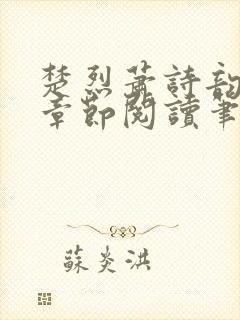 楚烈蕭詩韵
章節閱讀筆
蘇炎洪